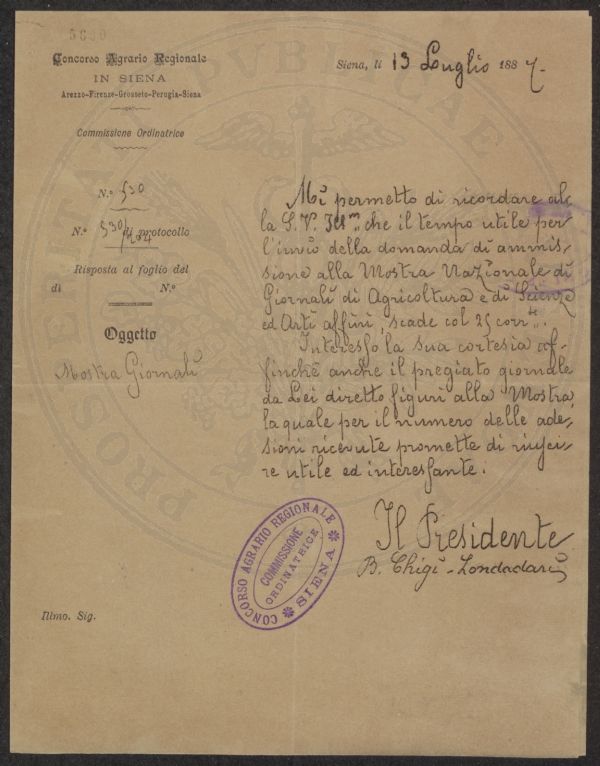 5690
Concorso Agrario Regionale
IN SIENA
Arezzo-Firenze-Grosseto-Perugia-Siena
Commissione Ordinatrice
N.º 530
N.º 530 di protocollo
Risposta al foglio del
di N.º
Oggetto
Mostra Giornali
Siena, li 13 Luglio 1887
Mi permetto di ricordare al=
la S. V. Ill.ma che il tempo utile per
l'invio della domanda di ammis=
sione alla Mostra Nazionale di
Giornali di Agricoltura e di Scienze
ed Arti affini, scade col 25 corr.te.
Interesso la sua cortesia af=
finchè anche il pregiato giornale
da Lei diretto figuri alla Mostra,
la quale per il numero delle ade=
sioni ricevute promette di riusci=
re utile ed interessante.
Il Presidente
B. Chigi-Zondadari
CONCORSO AGRARIO REGIONALE
COMMISSIONE
ORDINATRICE
SIENA
Illmo. Sig.
PROSPERITATI PUBLICAE